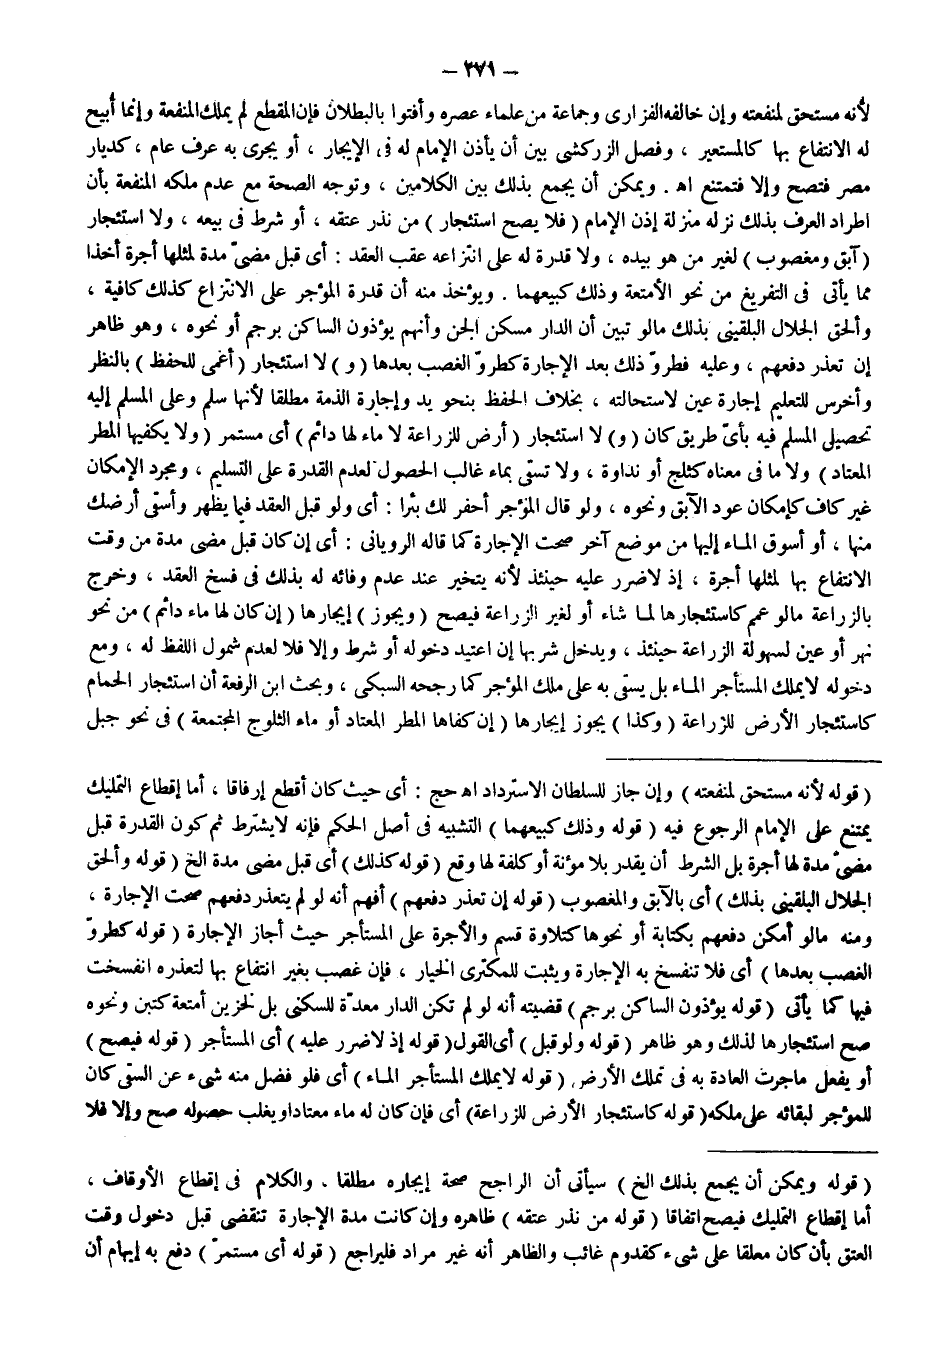 – ٢٧١ –
لأنه مستحق لمنفعته وإن خالفه الفزارى وجماعة من علماء عصره وأفتوا بالبطلان فإن المقطع لم يملك المنفعة وإنما أبيح
له الانتفاع بها كالمستعير ، وفصل الزركشى بين أن يأذن الإمام له فى الإيجار ، أو يجرى به عرف عام ، كديار
مصر فتصح وإلا فتمتنع اهـ . ويمكن أن يجمع بذلك بين الكلامين ، وتوجه الصحة مع عدم ملكه المنفعة بأن
اطراد العرف بذلك نزله منزلة إذن الإمام ( فلا يصح استئجار ) من نذر عتقه ، أو شرط فى بيعه ، ولا استئجار
( آبق ومغصوب ) لغير من هو بيده ، ولا قدرة له على انتزاعه عقب العقد : أى قبل مضىّ مدة لمثلها أجرة أخذا
مما يأتى فى التفريغ من نحو الأمتعة وذلك كبيعهما . ويؤخذ منه أن قدرة المؤجر على الانتزاع كذلك كافية ،
وألحق الجلال البلقينى بذلك مالو تبين أن الدار مسكن الجن وأنهم يؤذون الساكن برجم أو نحوه ، وهو ظاهر
إن تعذر دفعهم ، وعليه فطروّ ذلك بعد الإجارة كطروّ الغصب بعدها ( و ) لا استئجار ( أعمى للحفظ ) بالنظر
وأخرس للتعليم إجارة عين لاستحالته ، بخلاف الحفظ بنحو يد وإجارة الذمة مطلقا لأنها سلم وعلى المسلم إليه
تحصيل المسلم فيه بأىّ طريق كان ( و ) لا استئجار ( أرض للزراعة لا ماء لها دائم ) أى مستمر ( ولا يكفيها المطر
المعتاد ) ولا ما فى معناه كثلج أو نداوة ، ولا تسقى بماء غالب الحصول لعدم القدرة على التسليم ، ومجرد الإمكان
غير كاف كإمكان عود الآبق ونحوه ، ولو قال المؤجر أحفر لك بئرا : أى ولو قبل العقد فيما يظهر وأسقى أرضك
منها ، أو أسوق الماء إليها من موضع آخر صحت الإجارة كما قاله الرويانى : أى إن كان قبل مضى مدة من وقت
الانتفاع بها لمثلها أجرة ، إذ لا ضرر عليه حينئذ لأنه يتخير عند عدم وفائه له بذلك فى فسخ العقد ، وخرج
بالزراعة مالو عمم كاستئجارها لما شاء أو لغير الزراعة فيصح ( ويجوز ) إيجارها ( إن كان لها ماء دائم ) من نحو
نهر أو عين لسهولة الزراعة حينئذ ، ويدخل شربها إن اعتيد دخوله أو شرط وإلا فلا لعدم شمول اللفظ له ، ومع
دخوله لايملك المستأجر الماء بل يسقى به على ملك المؤجر كما رجحه السبكى ، وبحث ابن الرفعة أن استئجار الحمام
كاستئجار الأرض للزراعة ( وكذا ) يجوز إيجارها ( إن كفاها المطر المعتاد أو ماء الثلوج المجتمعة ) فى نحو جبل
( قوله لأنه مستحق لمنفعته ) وإن جاز للسلطان الاسترداد اهـ حج : أى حيث كان أقطع إرفاقا ، أما إقطاع التمليك
يمتنع على الإمام الرجوع فيه ( قوله وذلك كبيعهما ) التشبيه فى أصل الحكم فإنه لايشترط ثم كون القدرة قبل
مضىّ مدة لها أجرة بل الشرط أن يقدر بلا مؤنة أو كلفة لها وقع ( قوله كذلك ) أى قبل مضى مدة الخ ( قوله وألحق
الجلال البلقينى بذلك ) أى بالآبق والمغصوب ( قوله إن تعذر دفعهم ) أفهم أنه لو لم يتعذر دفعهم صحت الإجارة ،
ومنه مالو أمكن دفعهم بكتابة أو نحوها كتلاوة قسم والأجرة على المستأجر حيث أجاز الإجارة ( قوله كطروّ
الغصب بعدها ) أى فلا تنفسخ به الإجارة ويثبت للمكترى الخيار ، فإن غصب بغير انتفاع بها لتعذره انفسخت
فيها كما يأتى ( قوله يؤذون الساكن برجم ) قضيته أنه لو لم تكن الدار معدّة للسكنى بل لخزين أمتعة كتبن ونحوه
صح استئجارها لذلك وهو ظاهر ( قوله ولو قبل ) أى القول ( قوله إذ لاضرر عليه ) أى المستأجر ( قوله فيصح )
أو يفعل ماجرت العادة به فى تملك الأرض ( قوله لايملك المستأجر الماء ) أى فلو فضل منه شىء عن السقى كان
للمؤجر لبقائه على ملكه ( قوله كاستئجار الأرض للزراعة ) أى فإن كان له ماء معتاد أو يغلب حصوله صح وإلا فلا
( قوله ويمكن أن يجمع بذلك الخ ) سيأتى أن الراجح صحة إيجاره مطلقا . والكلام فى إقطاع الأوقاف ،
أما إقطاع التمليك فيصح اتفاقا ( قوله من نذر عتقه ) ظاهره وإن كانت مدة الإجارة تنقضى قبل دخول وقت
العتق بأن كان معلقا على شىء كقدوم غائب والظاهر أنه غير مراد فليراجع ( قوله أى مستمرّ ) دفع به إيهام أن